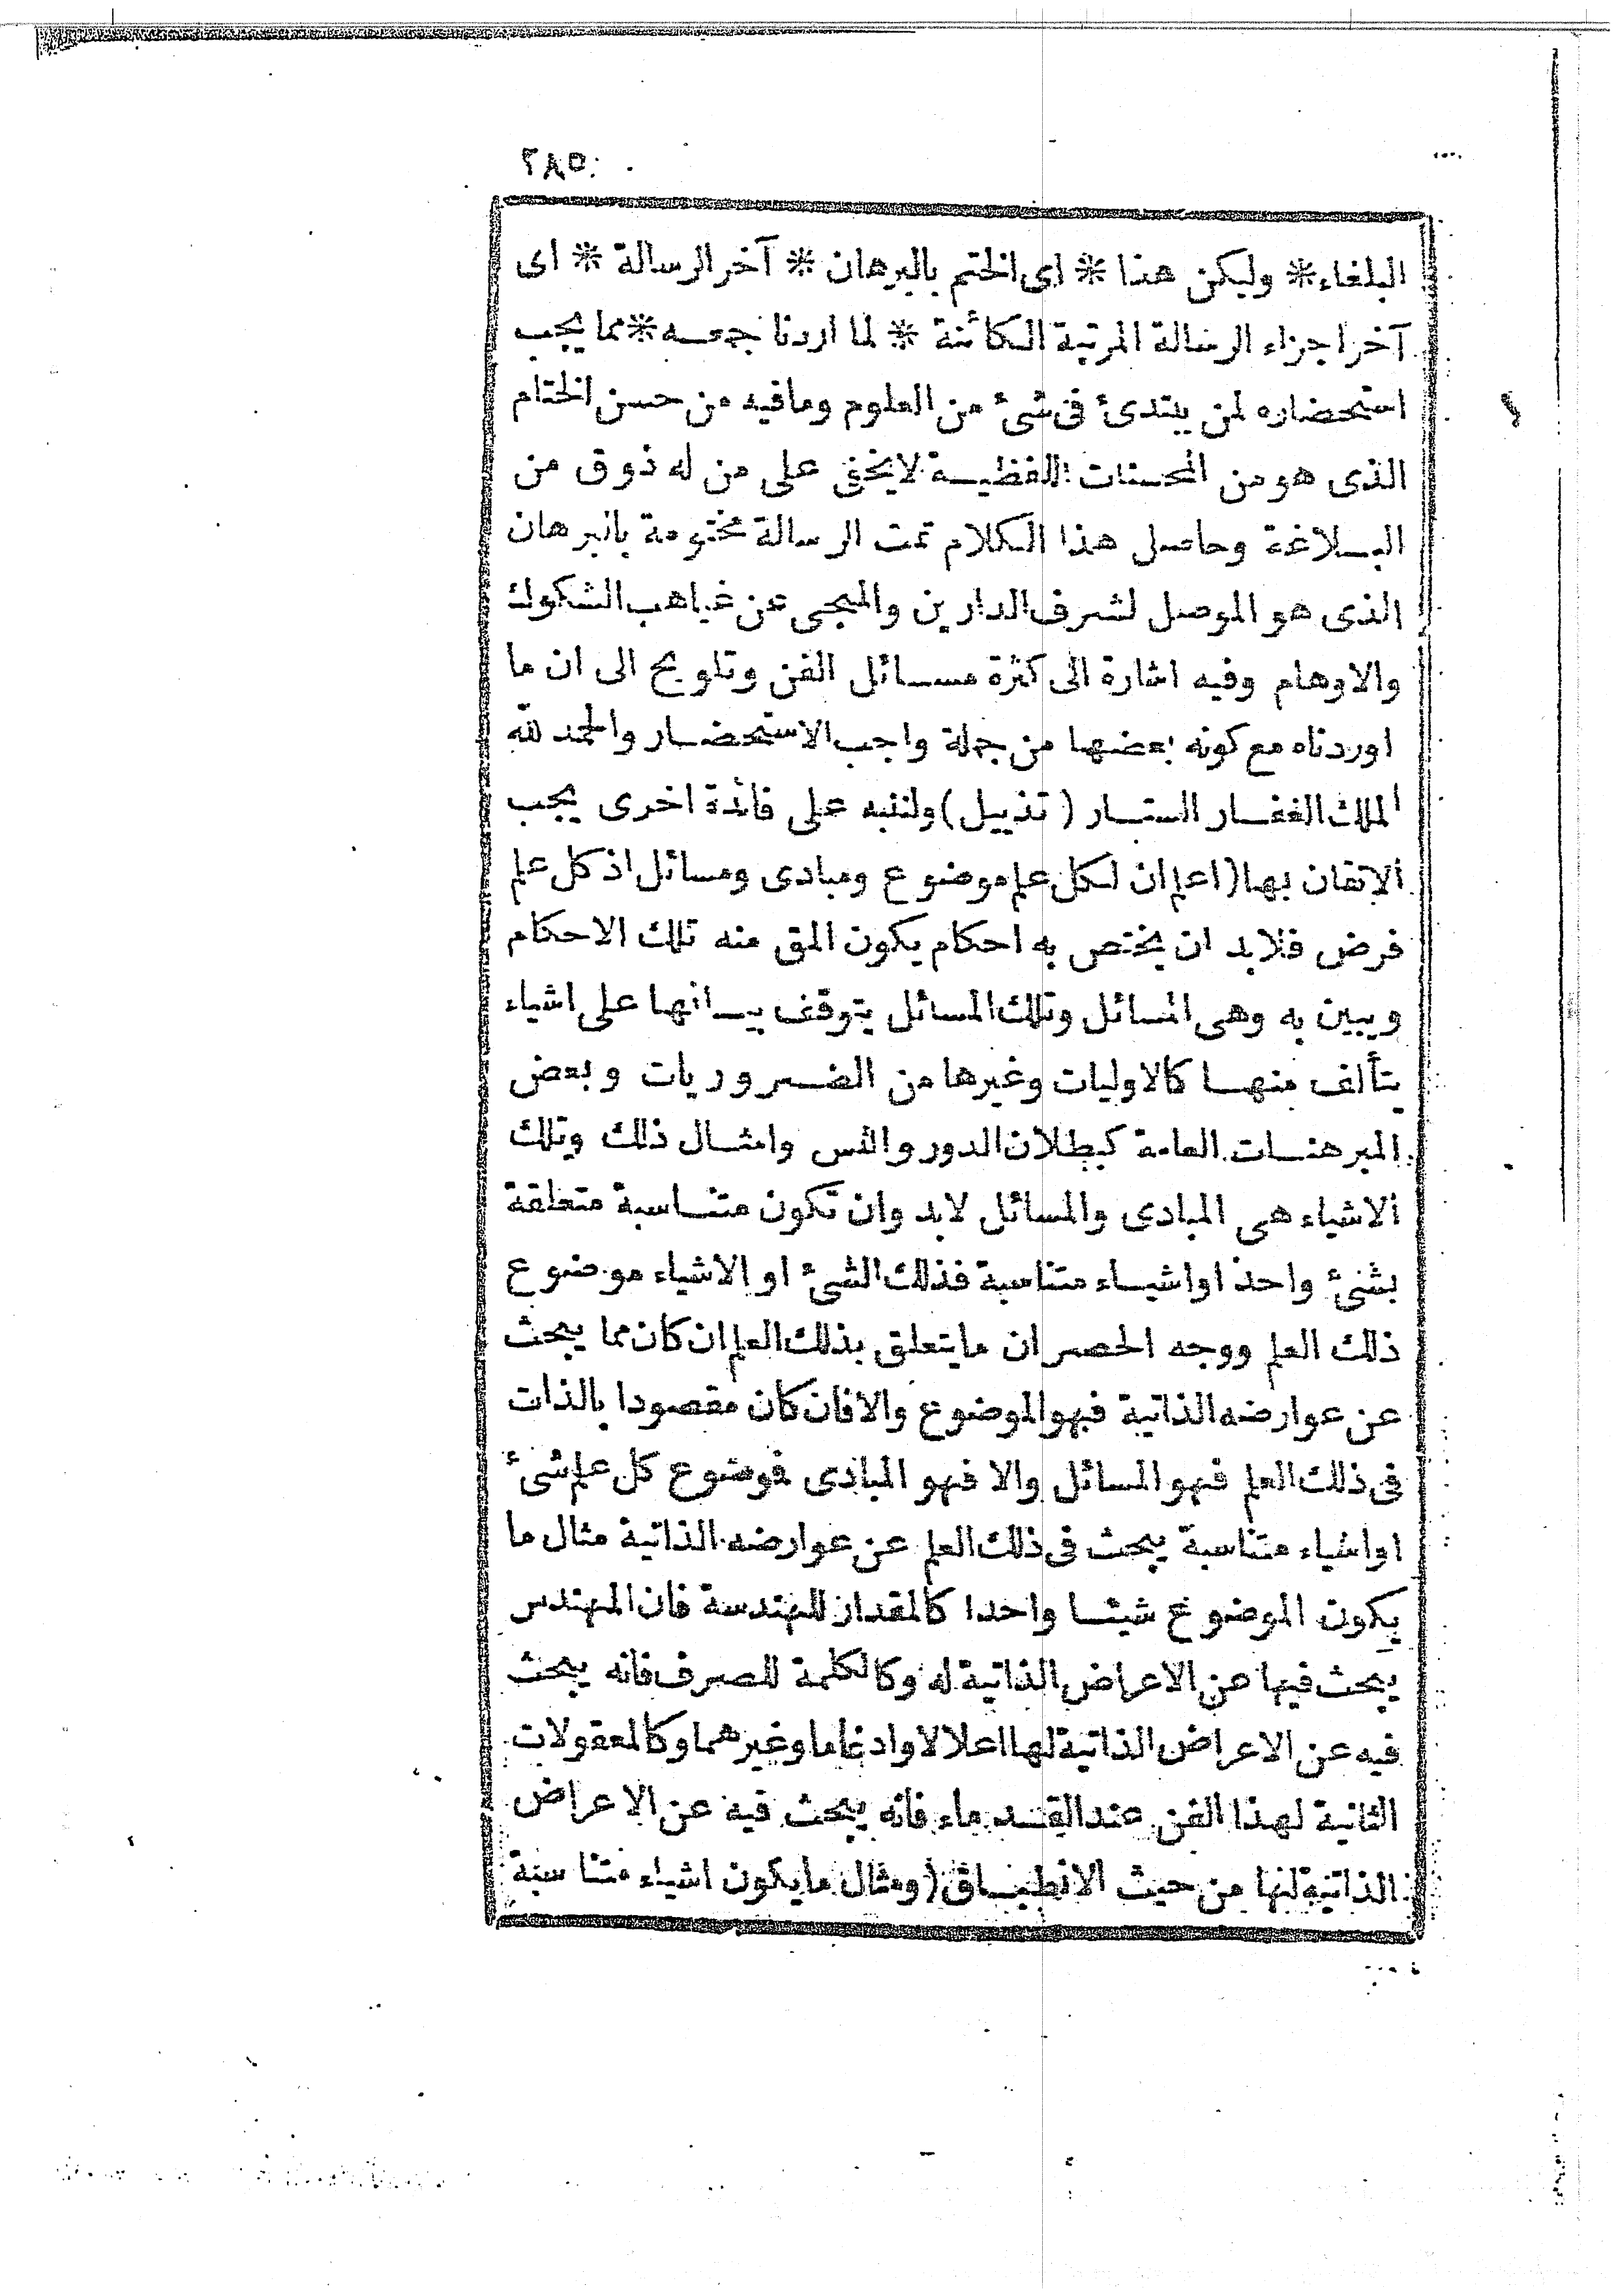 ٢٨٥
البلغاء * وليكن هذا * اى الختم بالبرهان * آخر الرسالة * اى
آخر اجزاء الرسالة المرتبة الكائنة * لما اردنا جمعه * مما يجب
استحضاره لمن يبتدئ فى شئ من العلوم ومافيه من حسن الختام
الذى هو من المحسنات اللفظية لايخفى على من له ذوق من
البلاغة وحاصل هذا الكلام تمت الرسالة مختومة بالبرهان
الذى هو الموصل لشرف الدارين والمنجى عن غياهب الشكوك
والاوهام وفيه اشارة الى كثرة مسائل الفن وتلويح الى ان ما
اوردناه مع كونه بعضها من جملة واجب الاستحضار والحمد لله
الملك الغفار الستار (تذييل) ولننبه على فائدة اخرى يجب
الاتقان بها (اعلم ان لكل علم موضوع ومبادى ومسائل اذ كل علم
فرض فلابد ان يختص به احكام يكون المق منه تلك الاحكام
ويبين به وهى المسائل وتلك المسائل يتوقف بيانها على اشياء
يتألف منها كالاوليات وغيرها من الضروريات وبعض
المبرهنات العامة كبطلان الدور والتس وامثال ذلك وتلك
الاشياء هى المبادى والمسائل لابد وان تكون متناسبة متعلقة
بشئ واحد او اشياء متناسبة فذلك الشئ او الاشياء موضوع
ذلك العلم ووجه الحصر ان مايتعلق بذلك العلم ان كان مما يبحث
عن عوارضه الذاتية فهو الموضوع والا فان كان مقصودا بالذات
فى ذلك العلم فهو المسائل والا فهو المبادى فموضوع كل علم شئ
او اشياء متناسبة يبحث فى ذلك العلم عن عوارضه الذاتية مثال ما
يكون الموضوع شيئا واحدا كالمقدار للهندسة فان المهندس
يبحث فيها عن الاعراض الذاتية له وكالكلمة للصرف فانه يبحث
فيه عن الاعراض الذاتية لها اعلالا وادغاما وغيرهما وكالمعقولات
الثانية لهذا الفن عند القدماء فانه يبحث فيه عن الاعراض
الذاتية لها من حيث الانطباق (ومثال مايكون اشياء متناسبة